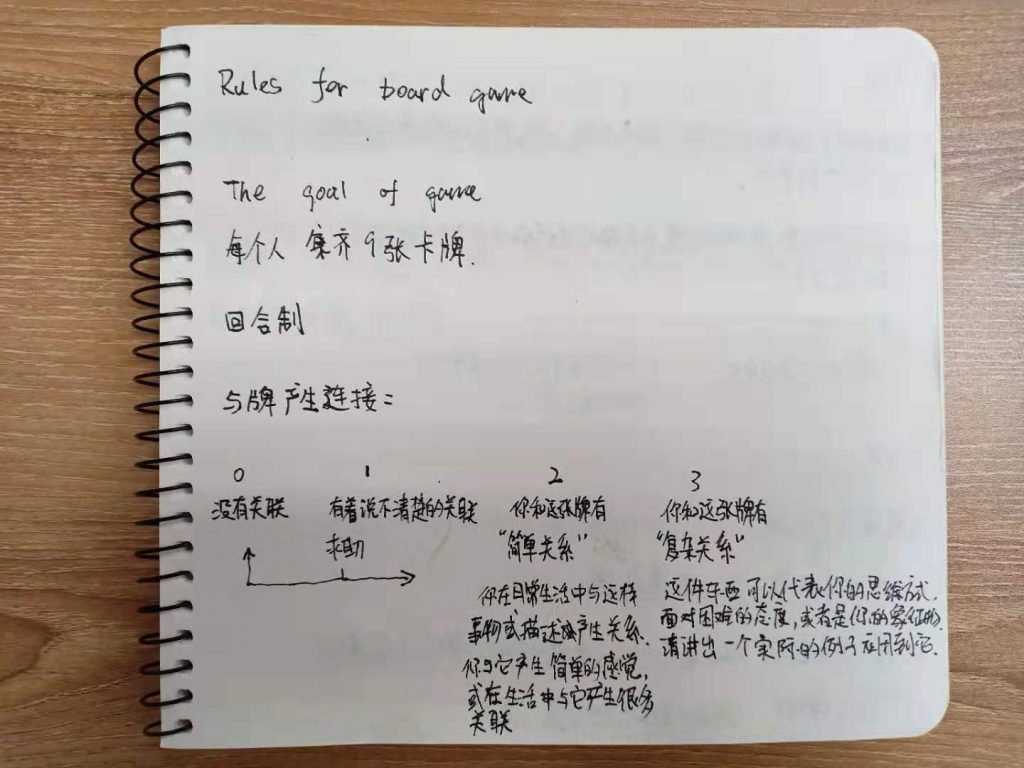 Rules for board game
The goal of game
每个人 集齐 9张卡牌.
回合制
与牌产生连接:
0 1 2 3
没有关联 有着说不清楚的关联 你和这张牌有 你和这张牌有
求助 "简单关系" "复杂关系"
你在日常生活中与这样
事物或描述产生关系.
你与它产生简单的感觉,
或在生活中与它产生很多
关联
这件东西可以代表你的思维方式.
面对困难的态度,或者是你的象征物.
请讲出一个实际的例子应用到它.